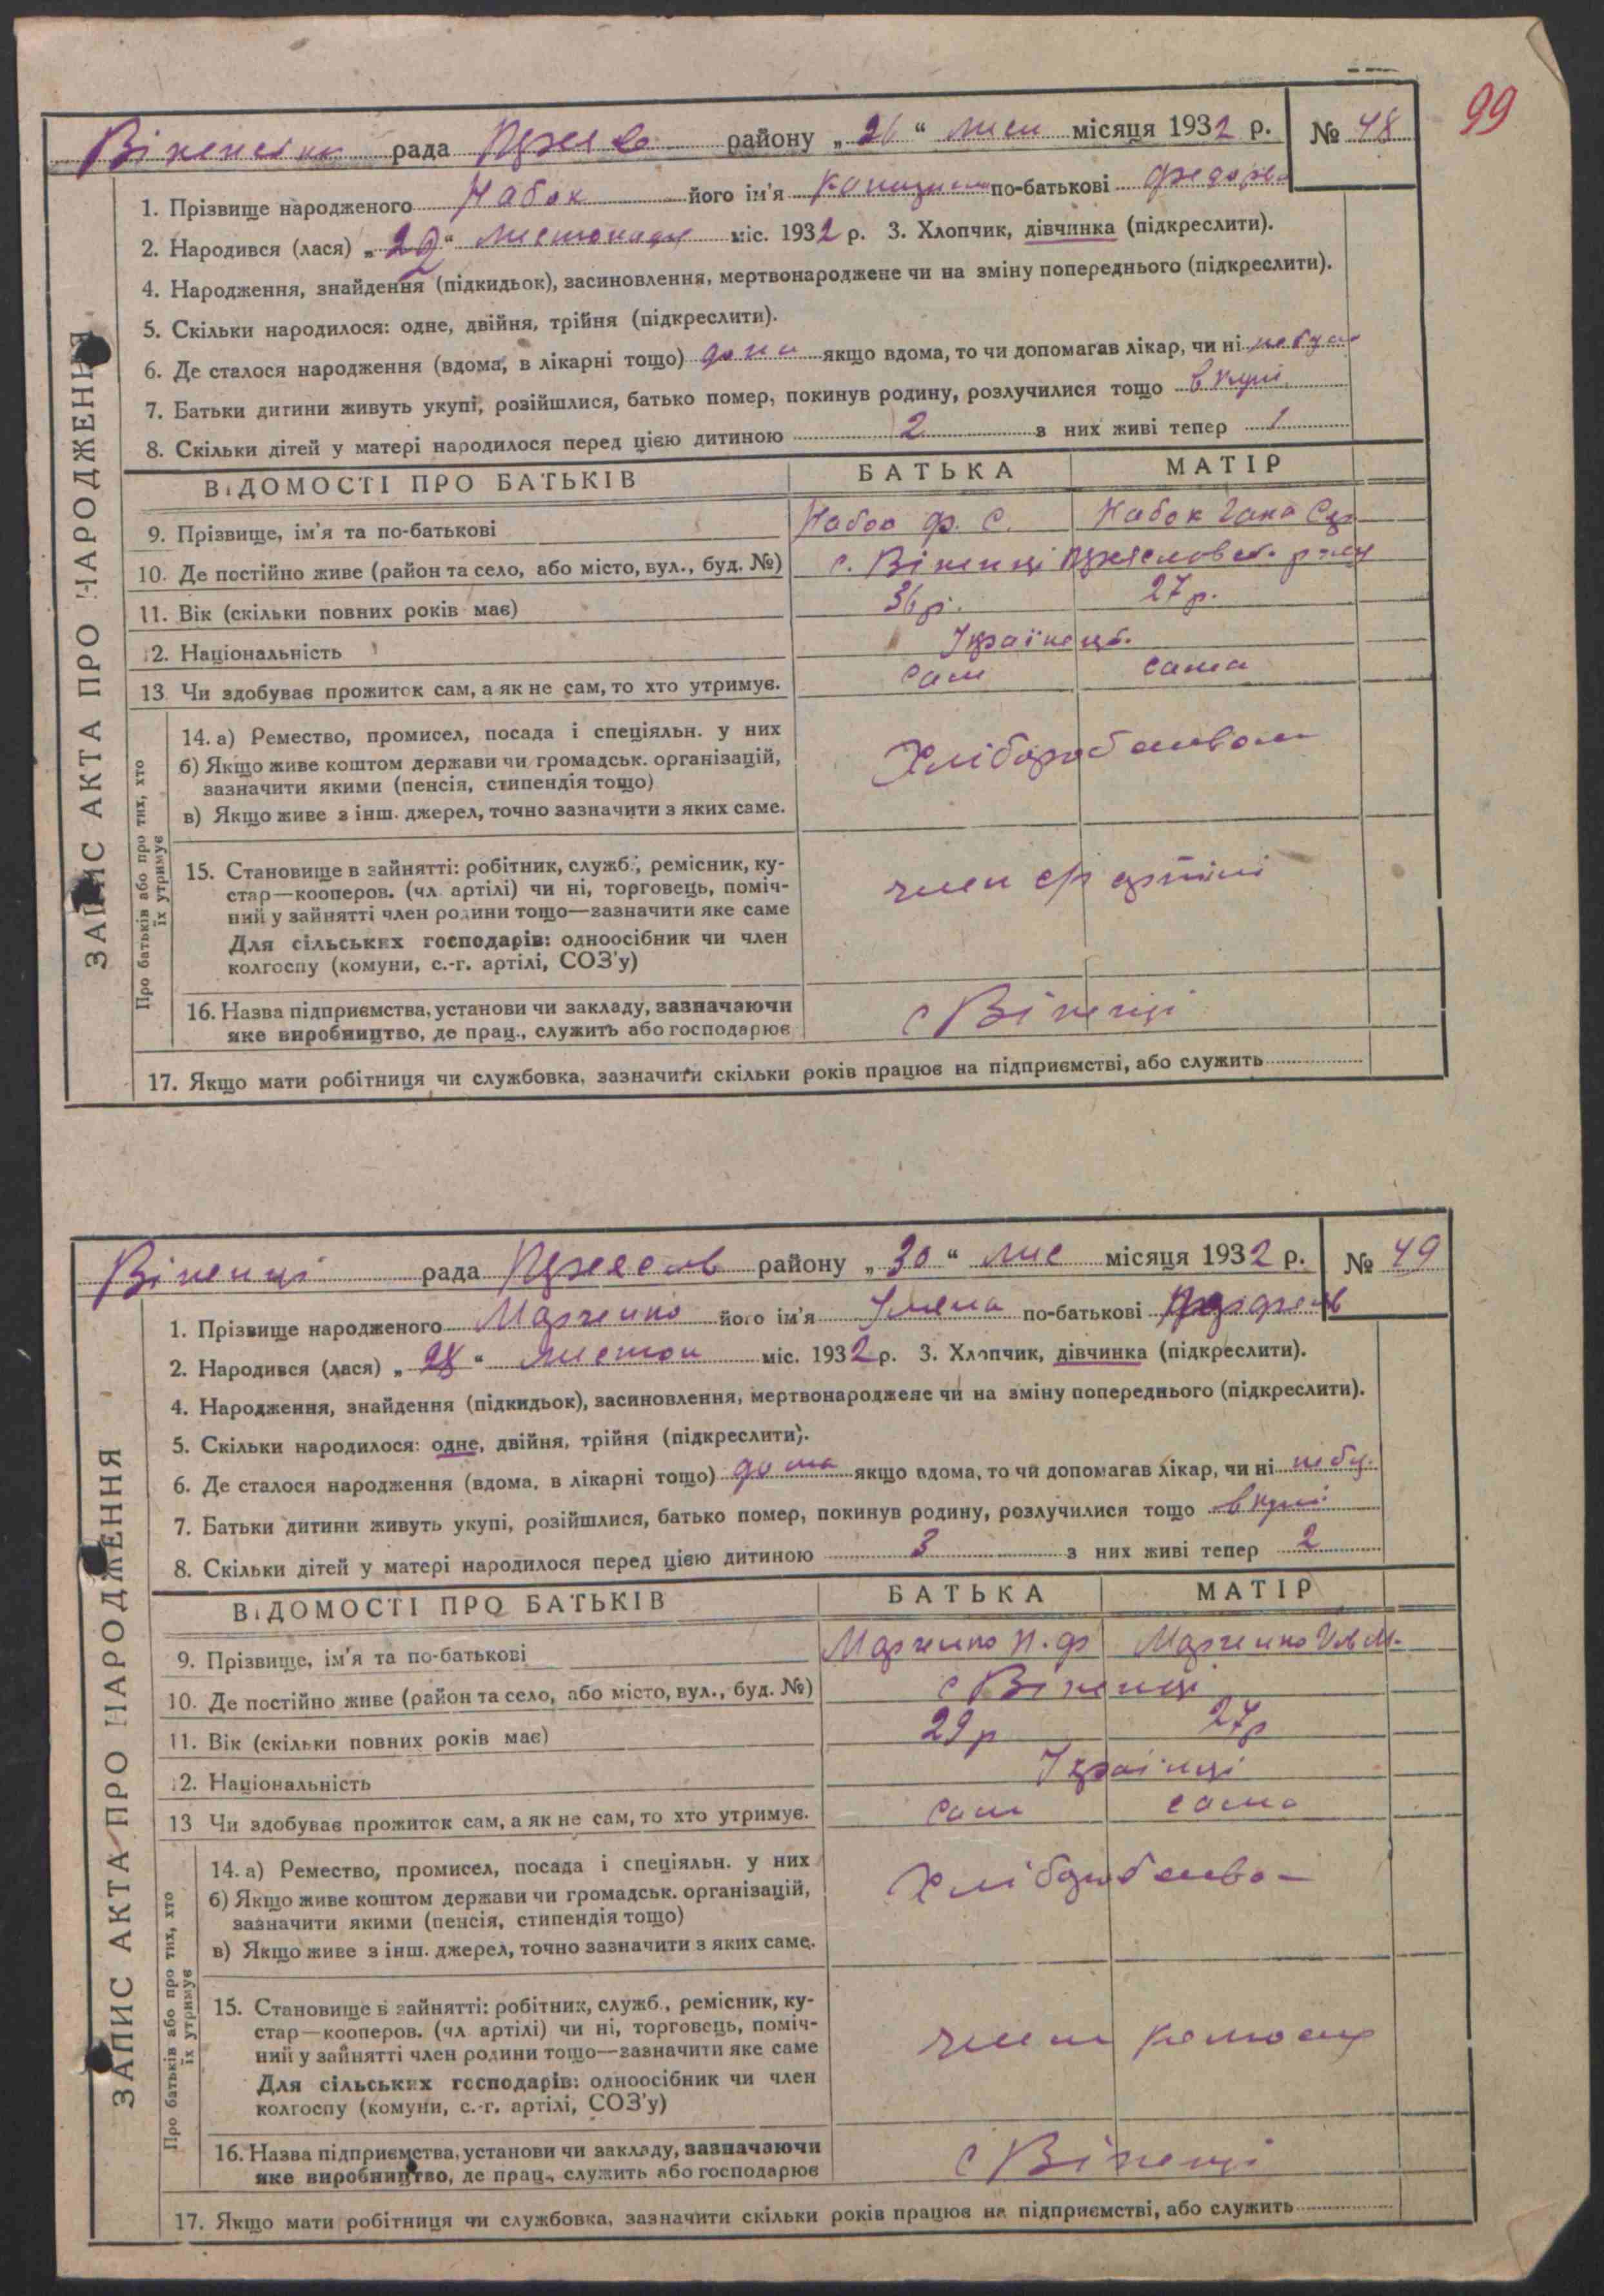 99
рада району „26“ лис місяця 1932 р. № 48
1. Прізвище народженого Набок його ім'я по-батькові
2. Народився (лася) „29“ листопаду міс. 1932 р. 3. Хлопчик, дівчинка (підкреслити).
4. Народження, знайдення (підкидьок), засиновлення, мертвонароджене чи на зміну попереднього (підкреслити).
5. Скільки народилося: одне, двійня, трійня (підкреслити).
6. Де сталося народження (вдома, в лікарні тощо) дома якщо вдома, то чи допомагав лікар, чи ні
7. Батьки дитини живуть укупі, розійшлися, батько помер, покинув родину, розлучилися тощо вкупі
8. Скільки дітей у матері народилося перед цією дитиною 2 з них живі тепер 1
ВІДОМОСТІ ПРО БАТЬКІВ БАТЬКА МАТІР
9. Прізвище, ім'я та по-батькові Набок Ф. С. Набок Гана
10. Де постійно живе (район та село, або місто, вул., буд. №) с. Віненці
11. Вік (скільки повних років має) 36 р. 27 р.
12. Національність Українець
13. Чи здобуває прожиток сам, а як не сам, то хто утримує. сам сама
14. а) Ремество, промисел, посада і спеціяльн. у них
б) Якщо живе коштом держави чи громадськ. організацій,
зазначити якими (пенсія, стипендія тощо)
в) Якщо живе з інш. джерел, точно зазначити з яких саме.
Хліборобством
15. Становище в зайнятті: робітник, служб., ремісник, ку-
стар—кооперов. (чл. артілі) чи ні, торговець, поміч-
ний у зайнятті член родини тощо—зазначити яке саме
Для сільських господарів: одноосібник чи член
колгоспу (комуни, с.-г. артілі, СОЗ'у)
член с/г артілі
16. Назва підприємства, установи чи закладу, зазначаючи
яке виробництво, де прац., служить або господарює
с Віненці
17. Якщо мати робітниця чи службовка, зазначити скільки років працює на підприємстві, або служить
ЗАПИС АКТА ПРО НАРОДЖЕННЯ
Про батьків або про тих, хто
їх утримує
Віненці рада району „30“ лис місяця 1932 р. № 49
1. Прізвище народженого Марченко його ім'я Уляна по-батькові
2. Народився (лася) „28“ листоп міс. 1932 р. 3. Хлопчик, дівчинка (підкреслити).
4. Народження, знайдення (підкидьок), засиновлення, мертвонароджене чи на зміну попереднього (підкреслити).
5. Скільки народилося: одне, двійня, трійня (підкреслити).
6. Де сталося народження (вдома, в лікарні тощо) дома якщо вдома, то чи допомагав лікар, чи ні
7. Батьки дитини живуть укупі, розійшлися, батько помер, покинув родину, розлучилися тощо вкупі
8. Скільки дітей у матері народилося перед цією дитиною 3 з них живі тепер 2
ВІДОМОСТІ ПРО БАТЬКІВ БАТЬКА МАТІР
9. Прізвище, ім'я та по-батькові Марченко П. Ф Марченко
10. Де постійно живе (район та село, або місто, вул., буд. №) с Віненці
11. Вік (скільки повних років має) 29 р 27 р
12. Національність Українці
13 Чи здобуває прожиток сам, а як не сам, то хто утримує. сам сама
14. а) Ремество, промисел, посада і спеціяльн. у них
б) Якщо живе коштом держави чи громадськ. організацій,
зазначити якими (пенсія, стипендія тощо)
в) Якщо живе з інш. джерел, точно зазначити з яких саме.
Хліборобство
15. Становище в зайнятті: робітник, служб., ремісник, ку-
стар—кооперов. (чл. артілі) чи ні, торговець, поміч-
ний у зайнятті член родини тощо—зазначити яке саме
Для сільських господарів: одноосібник чи член
колгоспу (комуни, с.-г. артілі, СОЗ'у)
член
16. Назва підприємства, установи чи закладу, зазначаючи
яке виробництво, де прац., служить або господарює
с Віненці
17. Якщо мати робітниця чи службовка, зазначити скільки років працює на підприємстві, або служить
ЗАПИС АКТА ПРО НАРОДЖЕННЯ
Про батьків або про тих, хто
їх утримує